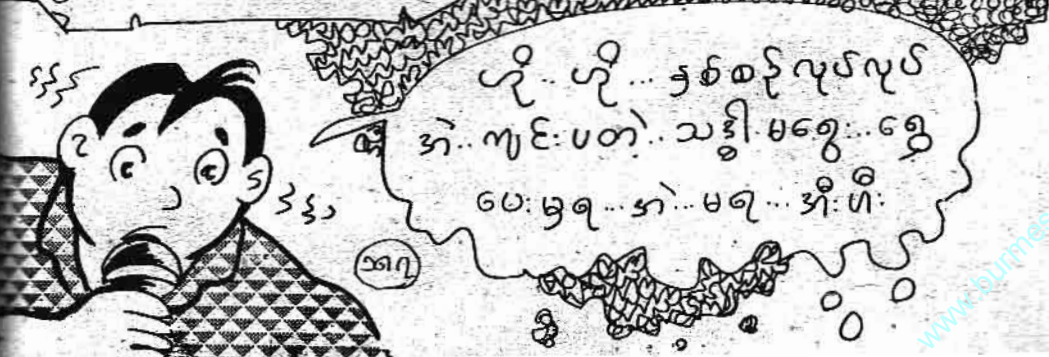 ဟို.. ဟို... နှစ်စဉ်လုပ်လုပ်
အဲ.. ကျင်းပတဲ့.. သဒ္ဒါ.. မရွေး.. ရွှေ
ပေးမှရ... အဲ... မရ... အီးဟီး
www.burmes